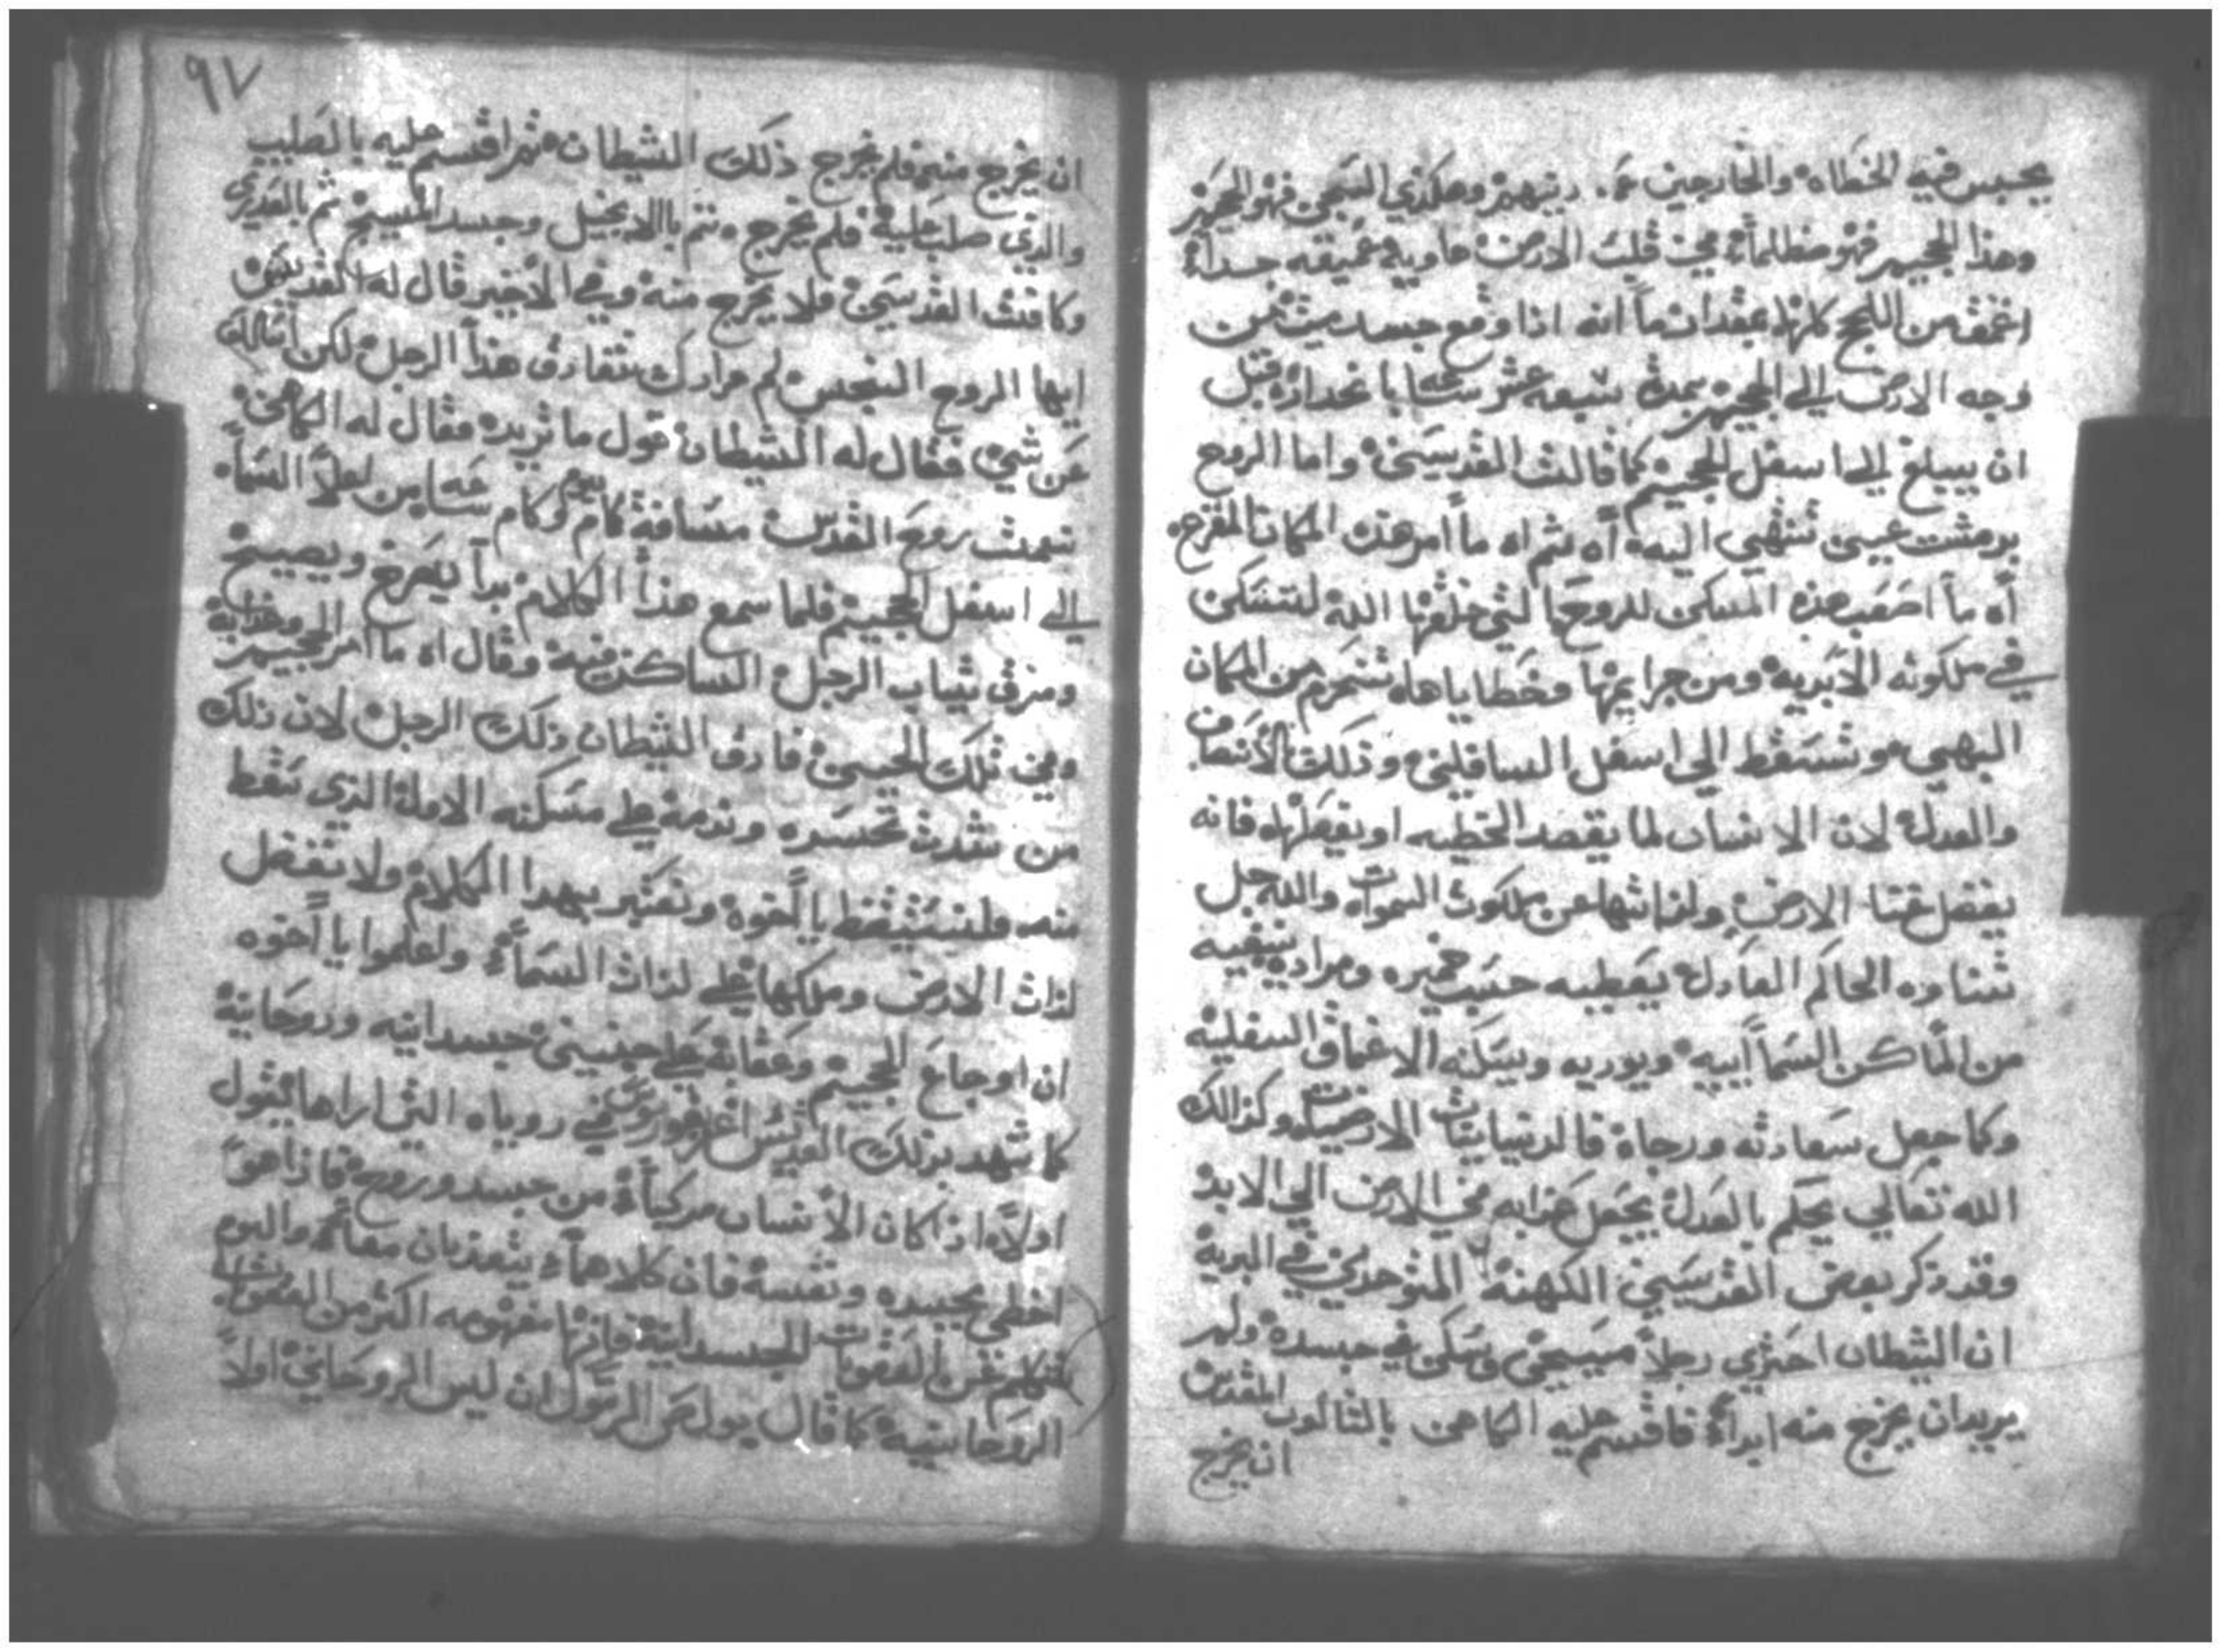 يحبس فيه الخطاه والخارجين عن دينهم وهكذي السجن فهو الجحيم
وهذا الجحيم فهو مظلماً في قلب الارض هاويه عميقه جداً
اعمق من اللجج كلها بمقدار ما انه اذا وقع جسد ميت من
وجه الارض الي الجحيم بمدة سبعه عشر ساعه بانحداره قبل
ان يبلغ الي اسفل الجحيم كما قالت القديسين واما الروح
برمشت عين تنتهي اليه آه ثم اه ما أمر هذه المكان المفزع
أه ما أصعب هذه المسكن للروح التي خلقها الله لتسكن
في ملكوته الأبديه ومن جرايمها وخطاياها تنحرم من المكان
البهي وتسقط الي اسفل السافلين وذلك الأنصاف
والعدل لان الانسان لما يقصد الخطيه او يفعلها فانه
يفضل قتنا الارض ولذاتها عن ملكوت السموات والله جل
ثناوه الحاكم العادل يعطيه حسب ضميره ومراده ينفيه
من الأماكن السمآييه ويوريه ويسكنه الاعماق السفليه
وكما جعل سعادته ورجاه فالدنيايات الارضيات وكذالك
الله تعالي يحكم بالعدل يجعل عذابه في الارض الي الابد
وقد ذكر بعض القديسين الكهنة المتوحدين في البرية
ان الشيطان احتري رجلاً مسيحي وسكن في جسده ولم
يريد ان يخرج منه ابداً فاقسم عليه الكاهن بالثالوث المقدس
ان يخرج
٩٧
ان يخرج منه فلم يخرج ذلك الشيطان ثم اقسم عليه بالصليب
والذي صلب عليه فلم يخرج ثم باالانجيل وجسد المسيح ثم بالعذري
وكافت القديسين فلا يخرج منه وفي الأخير قال له القديس
ايها الروح النجس لم مرادك تفارق هذا الرجل لكن أسالك
عن شي فقال له الشيطان قول ما تريد فقال له الكاهن
نعمت روح القدس مسافة كام يوم وكام ساعه من لعلا السماء
الي اسفل الجحيم فلما سمع هذا الكلام بدأ يصرخ ويصيح
ومزق ثياب الرجل الساكن فيه وقال اه ما أمر الجحيم وعذابه
وفي تلك الحين فارق الشيطان ذلك الرجل لان ذلك
من شدت تحسره وندمه علي مسكنه الاول الذي سقط
منه فلنستيقظ يا أخوة ونعتبر بهدا الكلام ولا نفضل
لذات الارض وملكها علي لذات السماء واعلموا يا أخوه
ان اوجاع الجحيم وعقابه علي جنسين جسدانيه وروحانية
كما شهد بذلك القديس اغريغوريوس في روياه التي اراها يقول
اولاً اذا كان الأنسان مركباً من جسد وروح فاذا هو
اخطي بجسده ونفسه فان كلاهما يتعذبان معاً ثم واليوم
نتكلم عن العقوبات الجسدانية فانها مفهومه اكثر من العقوبات
الروحانيه كما قال بولص الرسول ان ليس الروحاني اولاً